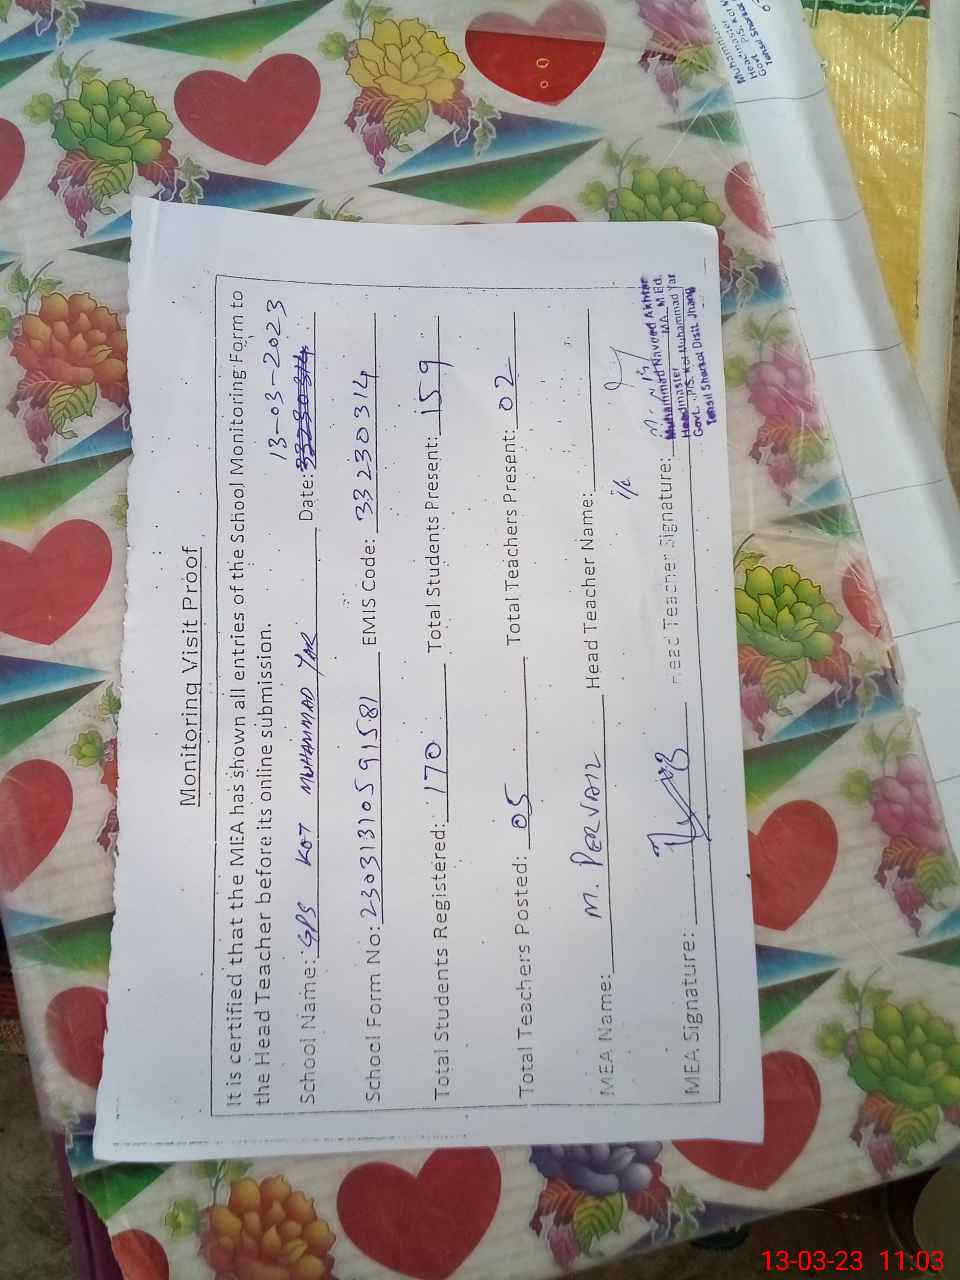 Monitoring Visit Proof
It is certified that the MEA has shown all entries of the School Monitoring Form to
the Head Teacher before its online submission.
13-03-2023
School Name: GPS KOT MUHAMMAD YAR Date: 33230314
School Form No: 23031310591581 EMIS Code: 33230314
Total Students Registered: 170 Total Students Present: 159
Total Teachers Posted: 05 Total Teachers Present: 02
MEA Name: M. PERVAIZ Head Teacher Name:
MEA Signature: Head Teacher Signature:
Muhammad Naveed Akhtar
Headmaster MA. M.Ed.
Govt. P/S. Kot Muhammad Yar
Tehsil Shorkot Distt Jhang
Headmaster
Govt. P/S. Kot
Tehsil Shorkot
13-03-23 11:03